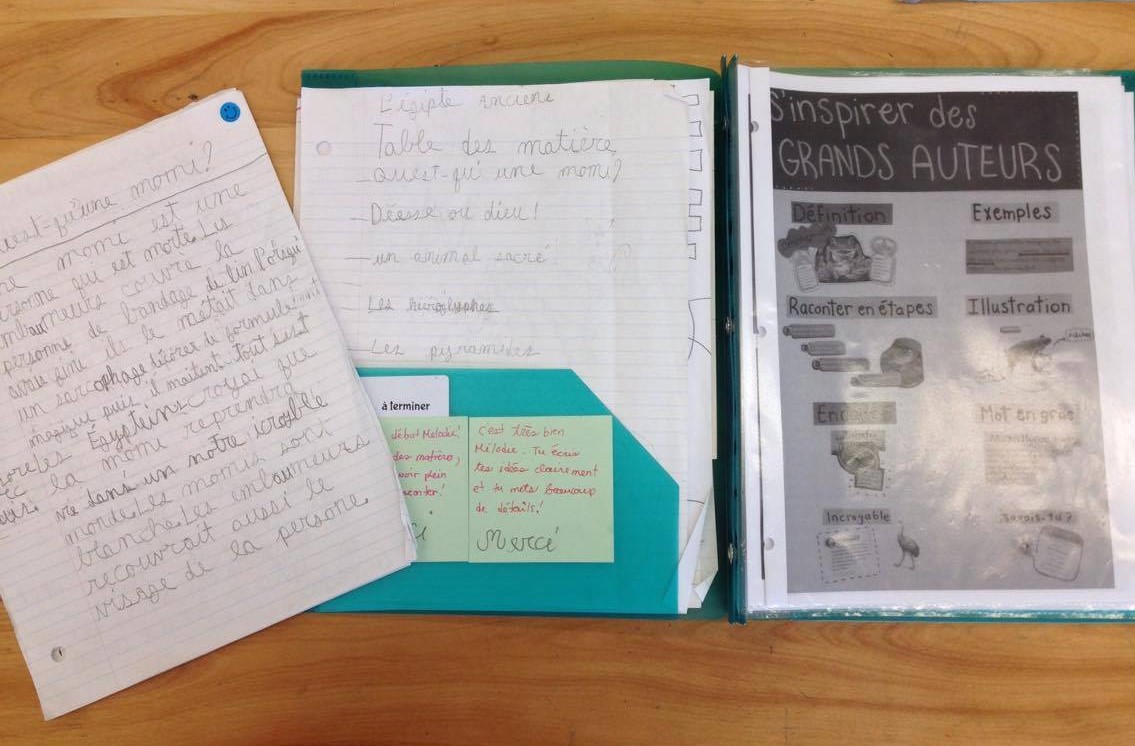 uest-qu'une momi?
momi est une
ersonne qui est morte. Les
embaumeurs couvre la
personne de bandage de lin. Porsqui
avais fini ils le métait dans
un sarcophage décorer de formule
magique puis il maitent tout
les Égypteins croyai que
la momi reprendra
vie dans un notre
monde. Les momis sont
blanche. Les embaumeurs
recouvrait aussi le
visage de la persone.
L'égipte Anciene
Table des matière
-Quest-qu'une momi?
-Déesse ou dieu!
-un animal sacré!
-Les
-Les pyramides
à terminer
début Mélodie!
des matière,
oir plein
conter!
C'est très bien
Mélodie. Tu écris
tes idées clairement
et tu mets beaucoup
de détails!
Merci
S'inspirer des
GRANDS AUTEURS
Définition
Exemples
Raconter en étapes
Illustration
Mot en gras
Incroyable
Savais-tu?